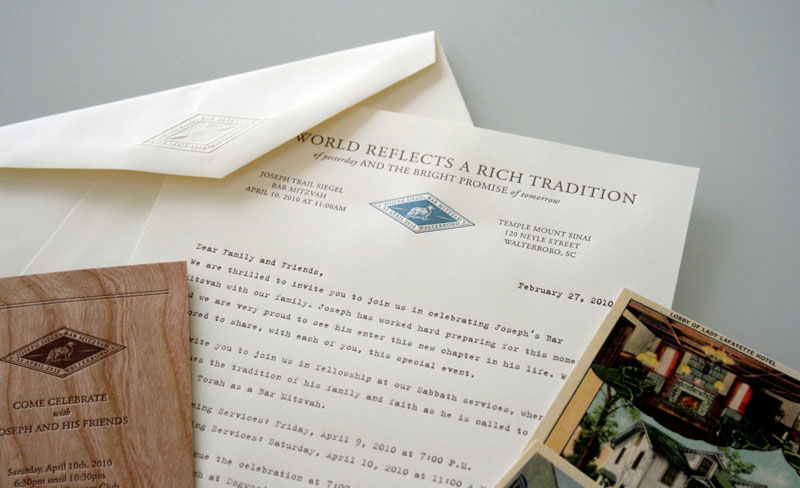 WORLD REFLECTS A RICH TRADITION
of yesterday AND THE BRIGHT PROMISE of tomorrow
JOSEPH TRAIL SIEGEL
BAR MITZVAH
APRIL 10, 2010 AT 11:00AM
TEMPLE MOUNT SINAI
120 NEYLE STREET
WALTERBORO, SC
February 27, 2010
Dear Family and Friends,
We are thrilled to invite you to join us in celebrating Joseph's Bar
Mitzvah with our family. Joseph has worked hard preparing for this momen
we are very proud to see him enter this new chapter in his life. W
ored to share, with each of you, this special event.
vite you to join us in fellowship at our Sabbath services, wher
es the tradition of his family and faith as he is called to
Torah as a Bar Mitzvah.
ning Services: Friday, April 9, 2010 at 7:00 P.M.
ning Services: Saturday, April 10, 2010 at 11:00 A
nue the celebration at 7:00
h at Dogwood
JOSEPH SIEGEL BAR MITZVAH
COME CELEBRATE
with
JOSEPH AND HIS FRIENDS
Saturday, April 10th, 2010
6:30pm until 10:30pm
Club
LOBBY OF LADY LAFAYETTE HOTEL